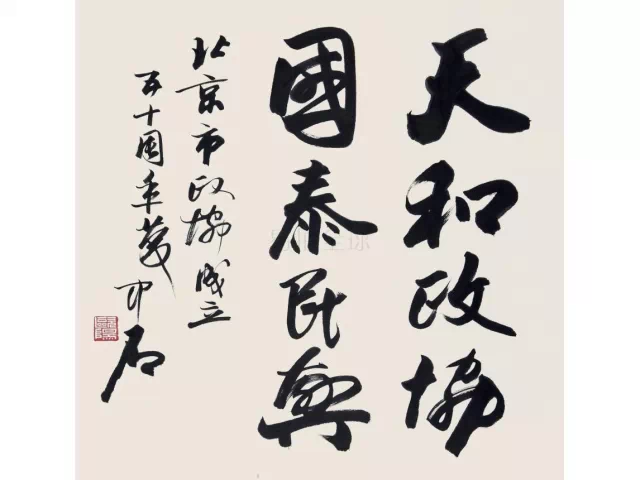 天和政協
國泰民興
北京市政協成立
五十周年慶
中石